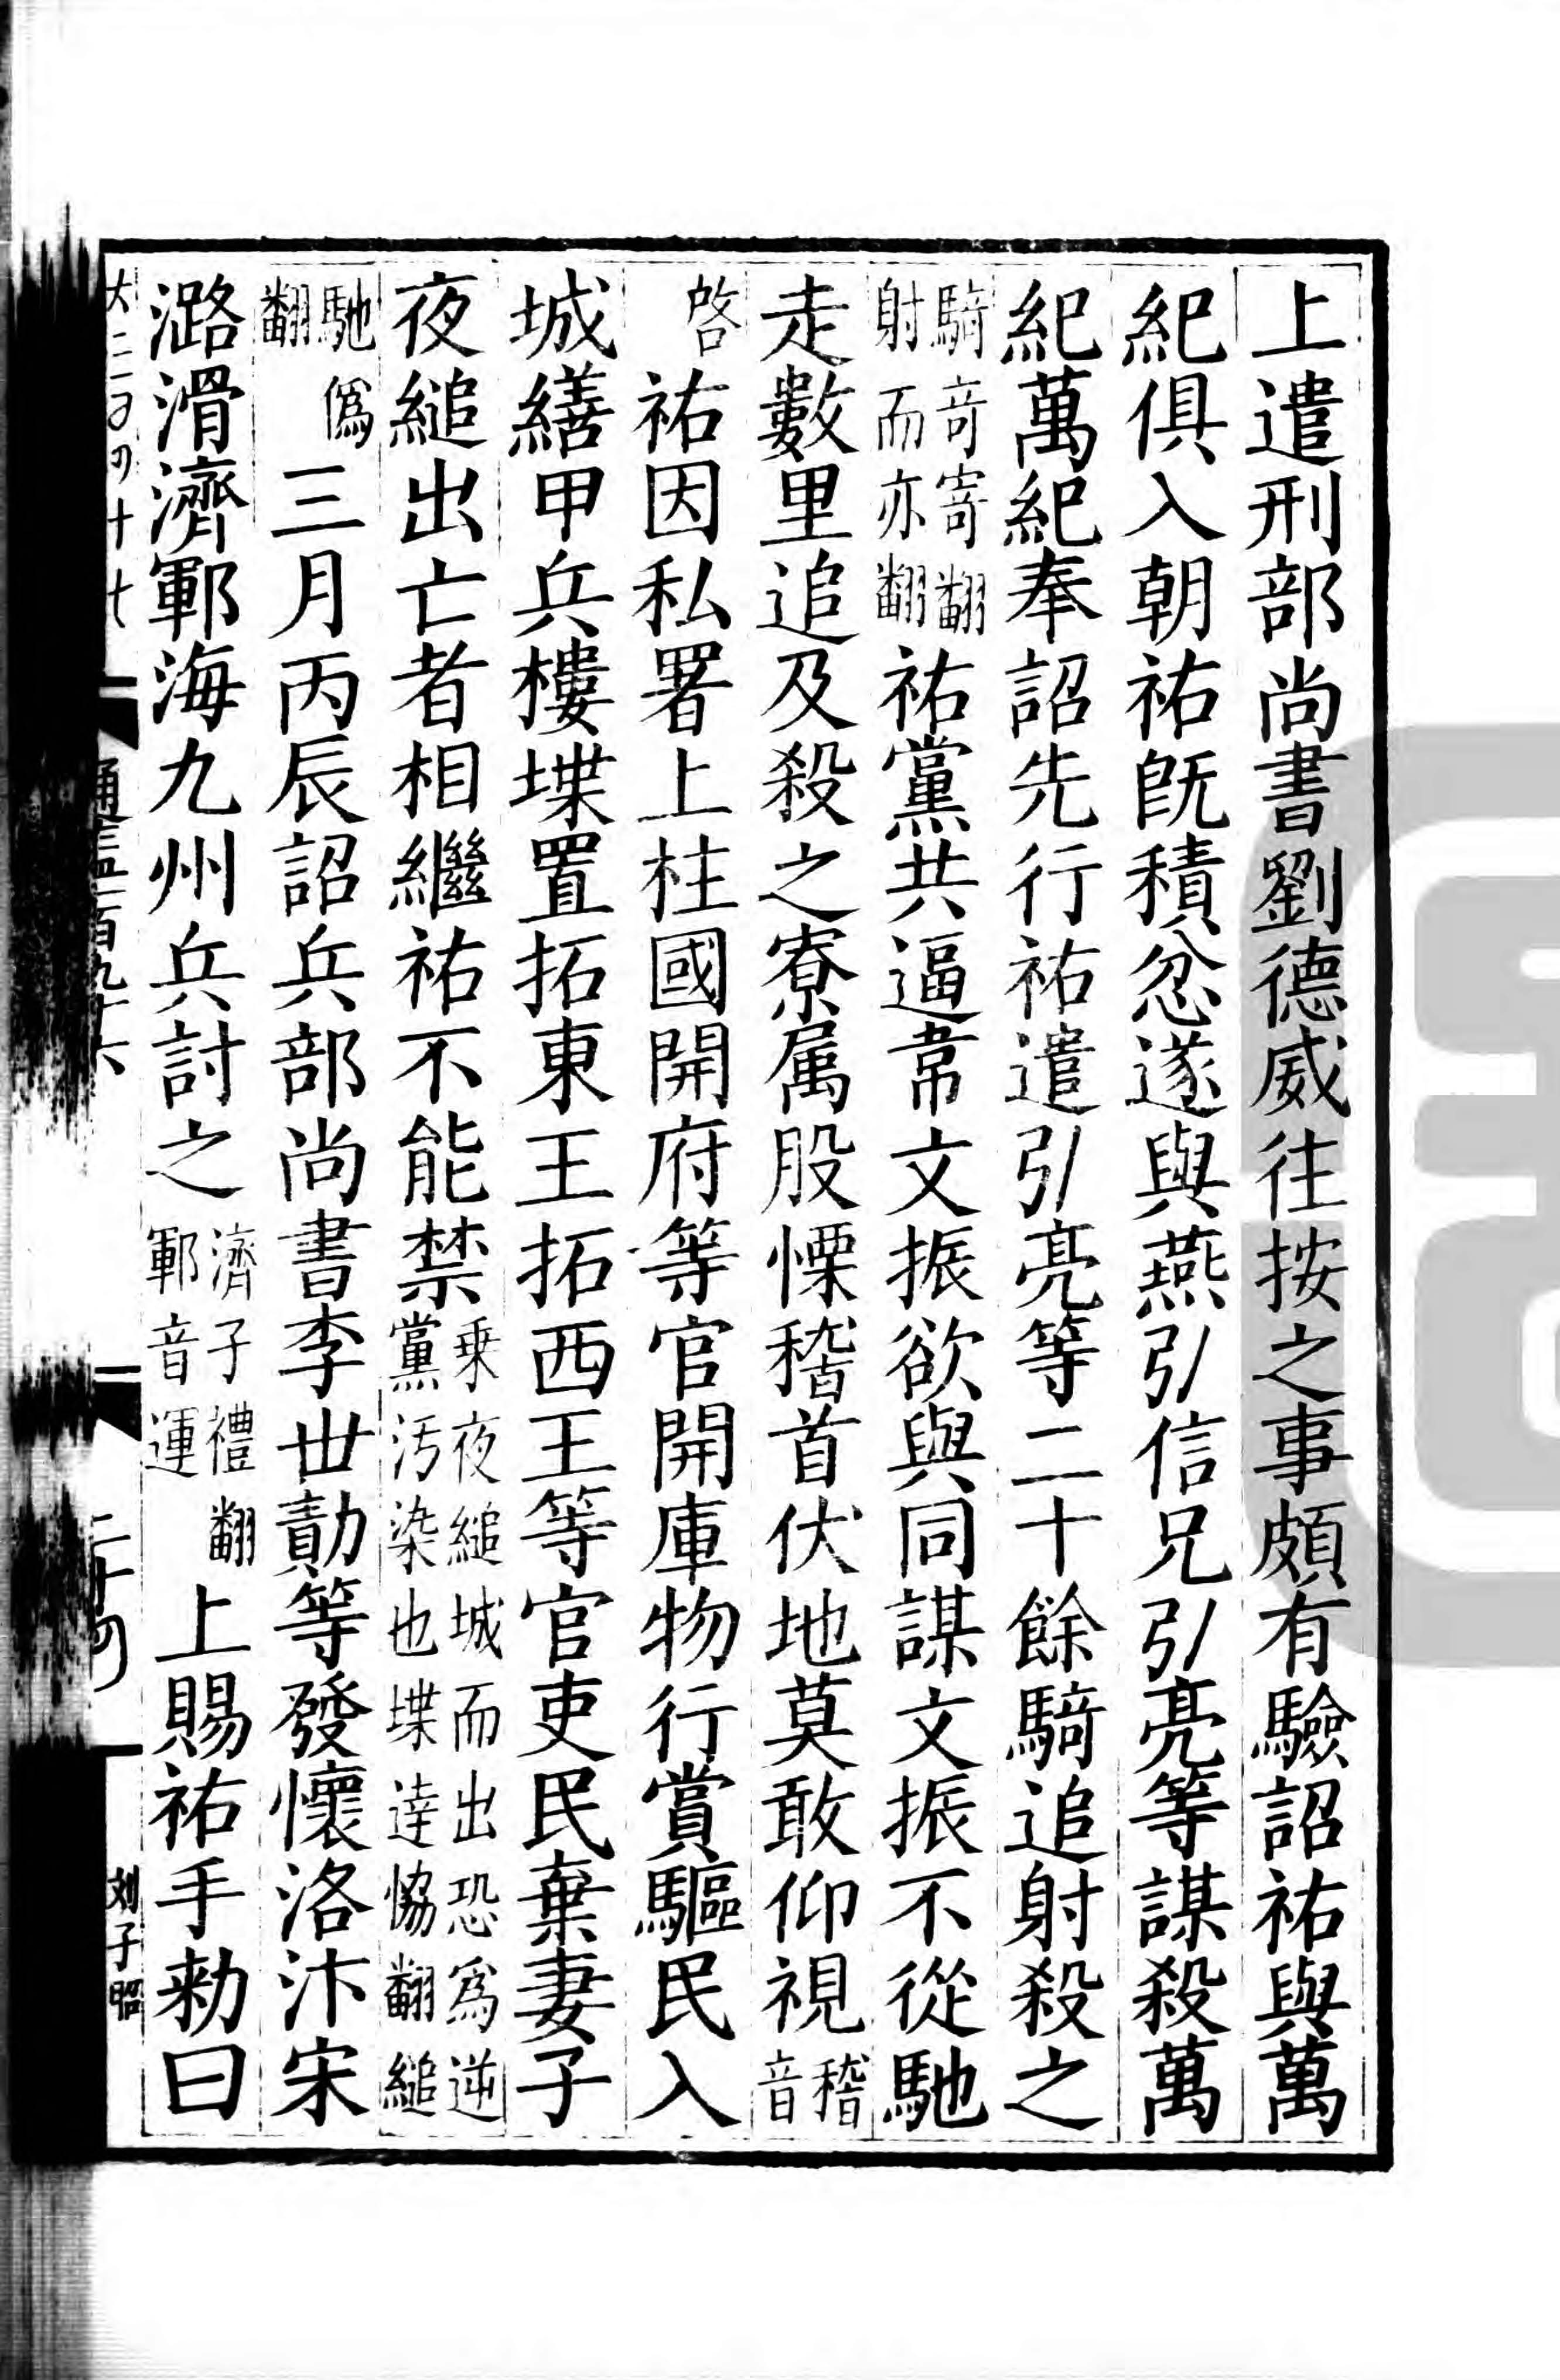 上遣刑部尚書劉德威往按之事頗有驗詔祐與萬
紀俱入朝祐旣積忿遂與燕引信兄引亮等謀殺萬
紀萬紀奉詔先行祐遣引亮等二十餘騎追射殺之
騎竒寄翻
射而亦翻
祐黨共逼韋文振欲與同謀文振不從馳
走數里追及殺之寮属股慄稽首伏地莫敢仰視
稽
音
啓
祐因私署上柱國開府等官開庫物行賞驅民入
城繕甲兵樓堞置拓東王拓西王等官吏民棄妻子
夜縋出亡者相繼祐不能禁
乗夜縋城而出恐爲逆
黨汚染也堞達恊翻縋
馳僞
翻
三月丙辰詔兵部尚書李世勣等發懷洛汴宋
潞滑濟鄆海九州兵討之
濟子禮翻
鄆音運
上賜祐手勑曰
通鑑一百九十六
二十四
刘子昭